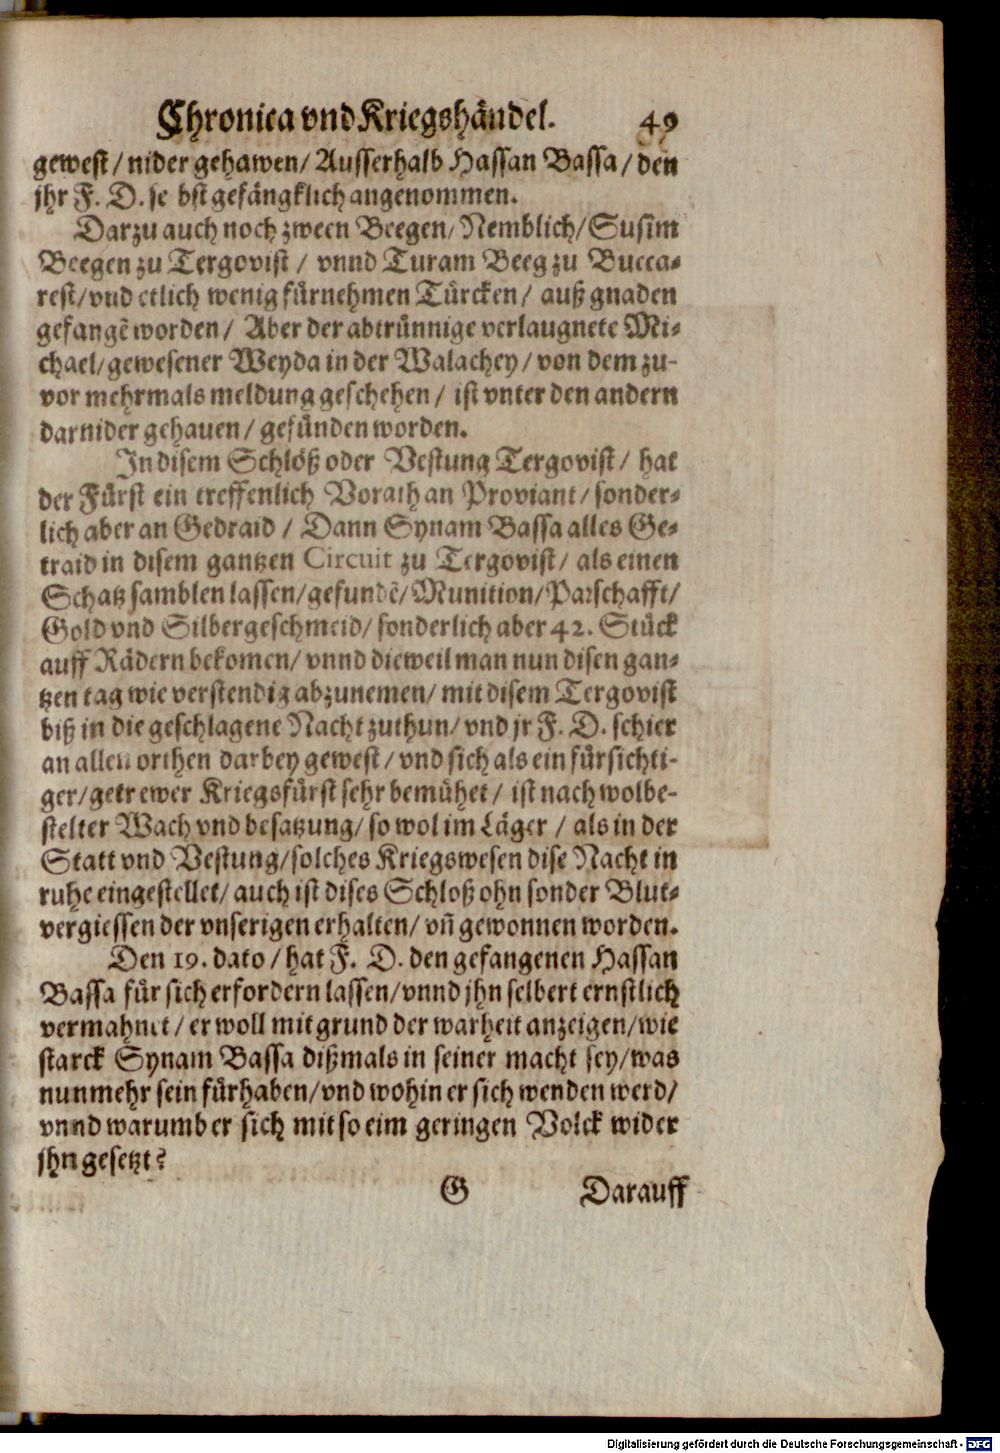 Chronica vnd Kriegshändel. 49
gewest / nider gehawen / Ausserhalb Hassan Bassa / den
jhr F. D. se bst gefängklich angenommen.
Darzu auch noch zween Beegen / Nemblich / Susim
Beegen zu Tergovist / vnnd Turam Beeg zu Bucca-
rest / vnd etlich wenig fürnehmen Türcken / auß gnaden
gefangẽ worden / Aber der abtrünnige verlaugnete Mi-
chael / gewesener Weyda in der Walachey / von dem zu-
vor mehrmals meldung geschehen / ist vnter den andern
darnider gehauen / gefünden worden.
In disem Schlöß oder Vestung Tergovist / hat
der Fürst ein treffenlich Vorath an Proviant / sonder-
lich aber an Gedraid / Dann Synam Bassa alles Ge-
traid in disem gantzen Circuit zu Tergovist / als einen
Schatz samblen lassen / gefundẽ / Munition / Parschafft /
Gold vnd Silbergeschmeid / sonderlich aber 42. Stück
auff Rädern bekomen / vnnd dieweil man nun disen gan-
tzen tag wie verstendig abzunemen / mit disem Tergovist
biß in die geschlagene Nacht zuthun / vnd jr F. D. schier
an allen orthen darbey gewest / vnd sich als ein fürsichti-
ger / getrewer Kriegsfürst sehr bemühet / ist nach wolbe-
stelter Wach vnd besatzung / so wol im Läger / als in der
Statt vnd Vestung / solches Kriegswesen dise Nacht in
ruhe eingestellet / auch ist dises Schloß ohn sonder Blut-
vergiessen der vnserigen erhalten / vñ gewonnen worden.
Den 19. dato / hat F. D. den gefangenen Hassan
Bassa für sich erfordern lassen / vnnd jhn selbert ernstlich
vermahnet / er woll mit grund der warheit anzeigen / wie
starck Synam Bassa dißmals in seiner macht sey / was
nunmehr sein fürhaben / vnd wohin er sich wenden werd /
vnnd warumb er sich mit so eim geringen Volck wider
jhn gesetzt?
G Darauff
Digitalisierung gefördert durch die Deutsche Forschungsgemeinschaft - DFG